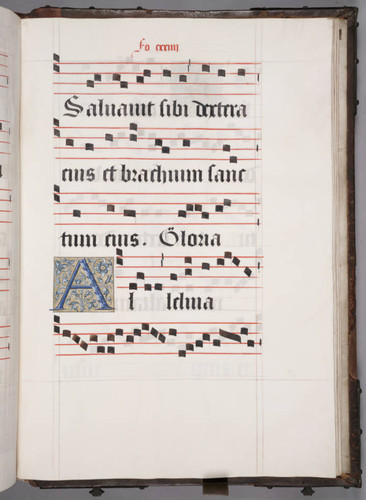 fo cxxiiij
Saluauit sibi dextera
eius et brachium sanc
tum eius. Gloria
Al leluia